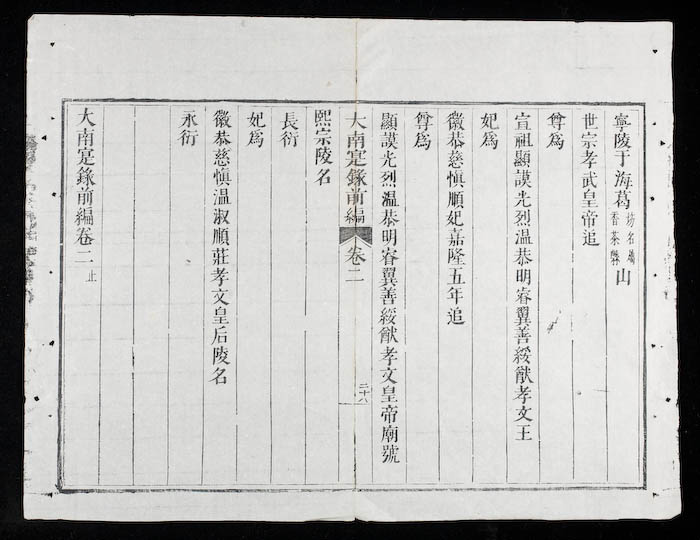 寧陵于海葛坊名屬香茶縣山
世宗孝武皇帝追
尊爲
宣祖顯謨光烈温恭明睿翼善綏猷孝文王
妃爲
徽恭慈愼順妃嘉隆五年追
尊爲
顯謨光烈温恭明睿翼善綏猷孝文皇帝廟號
大南寔錄前編 卷二 二十八
熙宗陵名
長衍
妃爲
徽恭慈愼温淑順莊孝文皇后陵名
永衍
大南寔錄前編卷二 止